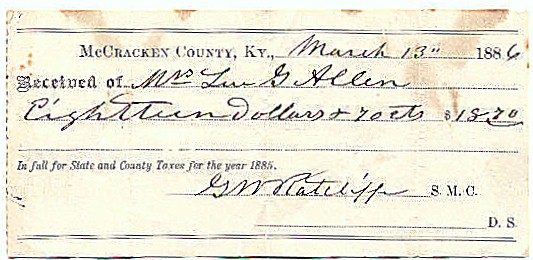 McCracken County, Ky., March 13" 1886
Received of Mrs Lue G Allen
Eighteen Dollars & 70 cts $18.70
In full for State and County Taxes for the year 1885.
G W Ratcliffe S. M. C.
D. S.